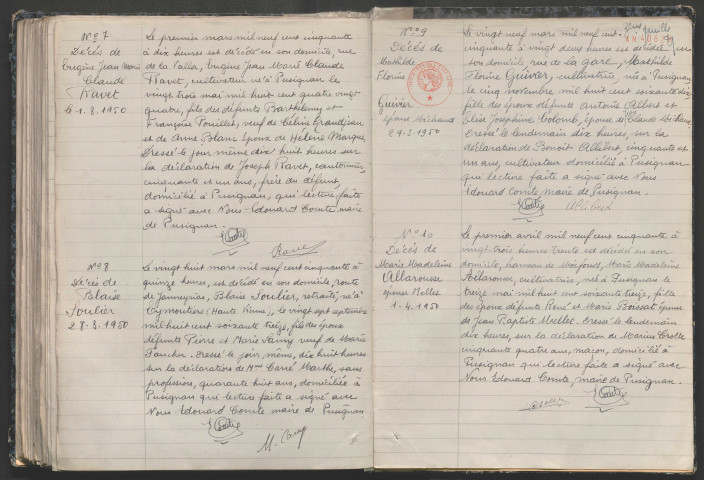 N° 7
Décès de
Eugène Jean Marie
Claude
Ravet
le 1.3.1950
Le premier mars mil neuf cent cinquante
à dix heures est décédé en son domicile, rue
de la Valla, Eugène Jean Marie Claude
Ravet, cultivateur né à Pusignan le
vingt trois mai mil huit cent quatre vingt
quatre, fils des époux défunts Barthélemy et
Françoise Pouillet, veuf de Céline Grandjean
et de Anne Blanc époux de Hélène Marque
Dressé le jour même dix huit heures sur
la déclaration de Joseph Ravet, cantonnier,
cinquante et un ans, frère du défunt,
domicilié à Pusignan, qui lecture faite
a signé avec Nous Edouard Comte maire
de Pusignan.
Comte
Ravet
N° 8
Décès de
Blaise
Soulier
28.3.1950
Le vingt huit mars mil neuf cent cinquante à
quinze heures, est décédé en son domicile, route
de Janneyrias, Blaise Soulier, retraité, né à
Eymoutiers (Haute Vienne), le vingt sept septembre
mil huit cent soixante treize, fils des époux
défunts Pierre et Marie Vanny veuf de Marie
Faucher. Dressé le jour même, dix huit heures
sur la déclaration de Mme Carré Marthe, sans
profession, quarante huit ans, domiciliée à
Pusignan qui lecture faite a signé avec
Nous Edouard Comte maire de Pusignan
Comte
M. Carré
N° 9
Décès de
Mathilde
Florine
Guivier
épouse Michaud
29.3.1950
Le vingt neuf mars mil neuf cent
cinquante à vingt deux heures est décédée en
son domicile, rue de la gare, Mathilde
Florine Guivier, cultivatrice, née à Pusignan
le cinq novembre mil huit cent soixante dix
fille des époux défunts Antoine Albert et
Elise Joséphine Colomb, épouse de Claude Michaud
Dressé le lendemain dix heures, sur la
déclaration de Benoit Allibert, cinquante et
un ans, cultivateur domicilié à Pusignan
qui lecture faite a signé avec Nous
Edouard Comte, maire de Pusignan.
Comte
Allibert
N° 10
Décès de
Marie Madeleine
Allarousse
épouse Mellet
1.4.1950
Le premier avril mil neuf cent cinquante à
vingt trois heures trente est décédée en son
domicile, hameau de Moifond, Marie Madeleine
Allarousse, cultivatrice, née à Pusignan le
treize mai mil huit cent soixante treize, fille
des époux défunts René et Marie Boissat épouse
de Jean Baptiste Mellet. Dressé le lendemain
dix heures, sur la déclaration de Marius Crolle
cinquante quatre ans, maçon, domicilié à
Pusignan qui lecture faite a signé avec
Nous Edouard Comte, maire de Pusignan.
Comte